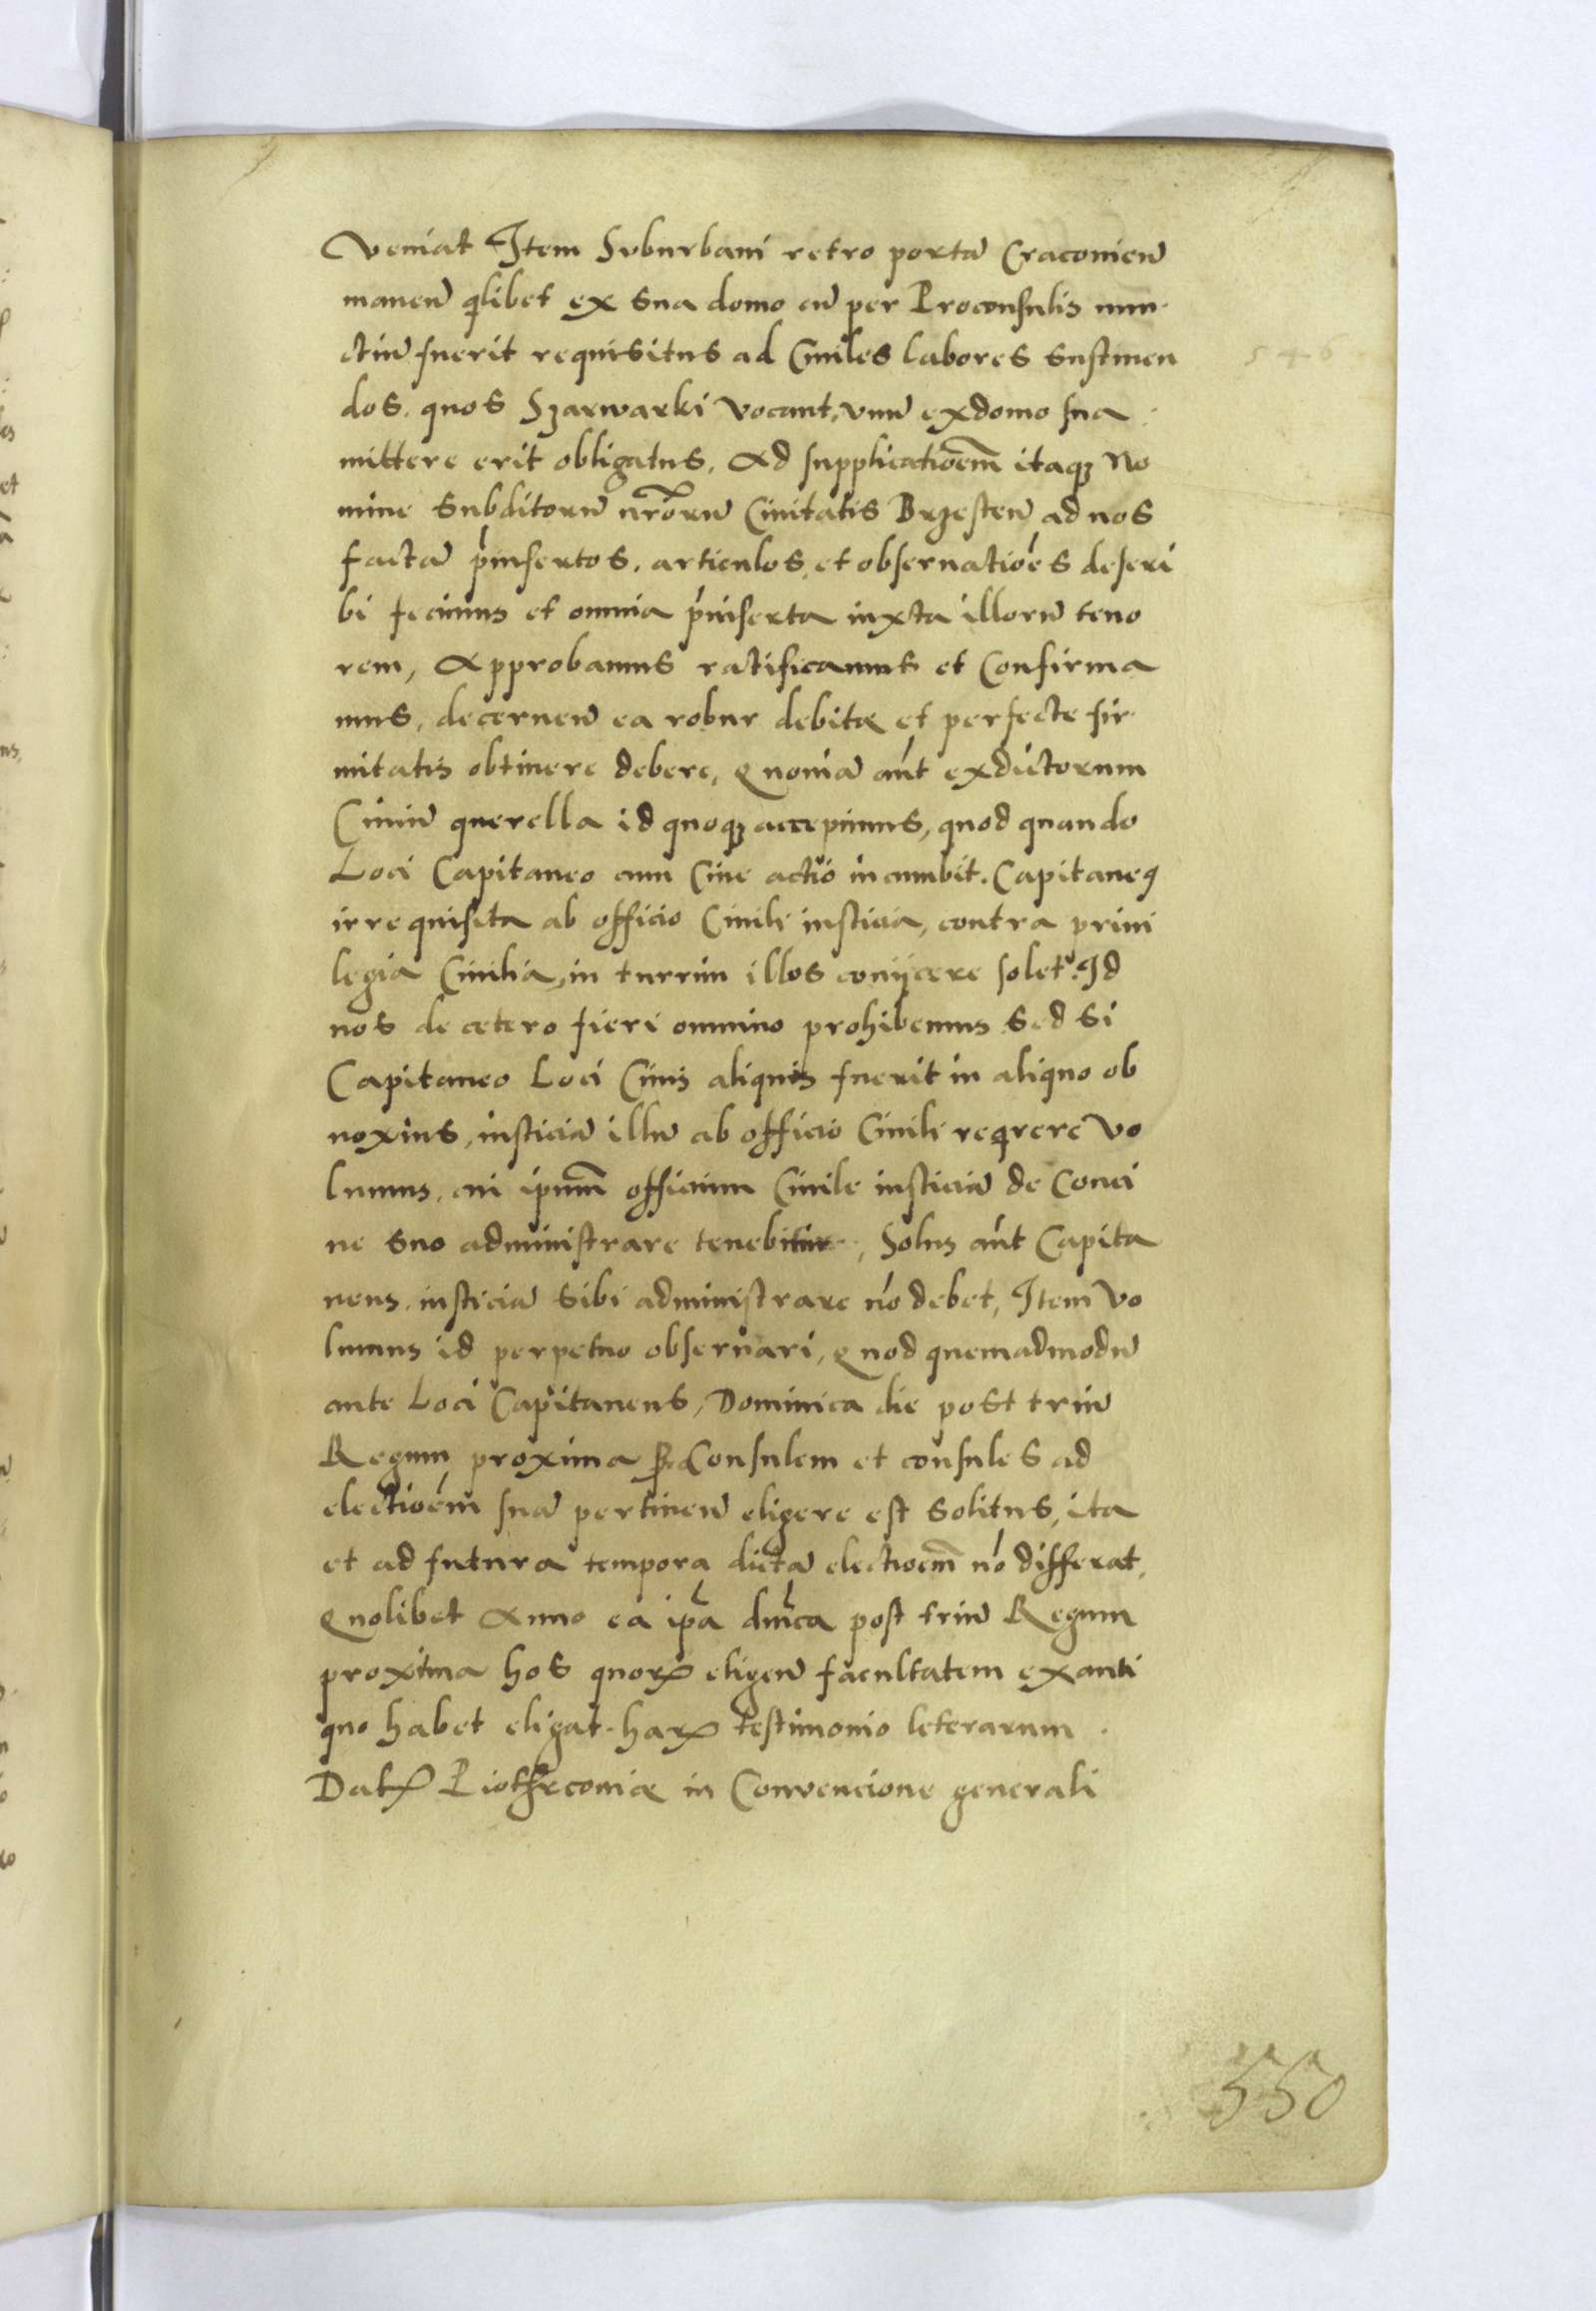 Veniat Item Suburbani retro portā Cracovieñ
maneñ qlibet ex Sua domo cū per Proconsulis nun-
ctiū fuerit requisitus ad Civiles labores sustinen
dos. quos Szarwarki vocant, unū ex domo sua
mittere erit obligatus, Ad supplicatioem̄ itaqʒ No
mine Subditorū nr̄orū Civitatis Brzesteñ ad nos
factā p̄insertos. articulos, et observatioēs descri
bi fecimus et omnia p̄inserta iuxta illorū teno
rem, Approbamus ratificamus et Confirma
mus, decerneñ ea robur debitæ et perfecte fir-
mitatis obtinere debere, Quoniā aūt ex dictorum
Civiū querella id quoqʒ accepimus, quod quando
Loci Capitaneo cum Cive actio incumbit. Capitaneꝰ
irrequisita ab officio Civili iusticia, contra privi
legia Civilia, in turrim illos coniicere solet. Id
nos de cetero fieri omnino prohibemus Sed Si
Capitaneo Loci Civis aliquis fuerit in aliquo ob
noxius, iusticiā illū ab officio Civili reqrere vo
lumus, cui ipsum̄ officium Civile iusticiā de Conci
ne Suo administrare tenebitur, Solus aūt Capita
neus. iusticiā Sibi administrare nō debet, Item vo
lumus id perpetuo observari, Quod quemadmodū
ante Loci Capitaneus, Dominica die post triū
Regum proxima P̱Consulem et consules ad
electioēm suā pertineñ eligere est Solitus, ita
et ad futura tempora dictā electioem̄ nō differat,
Quolibet Anno ea ip̄a dn̄ica post triū Regum
proxima hos quoꝝ eligeñ facultatem ex anti
quo habet eligat. haꝝ testimonio leterarum.
Datꝝ Piothrcoviæ in Convencione generali
546
550